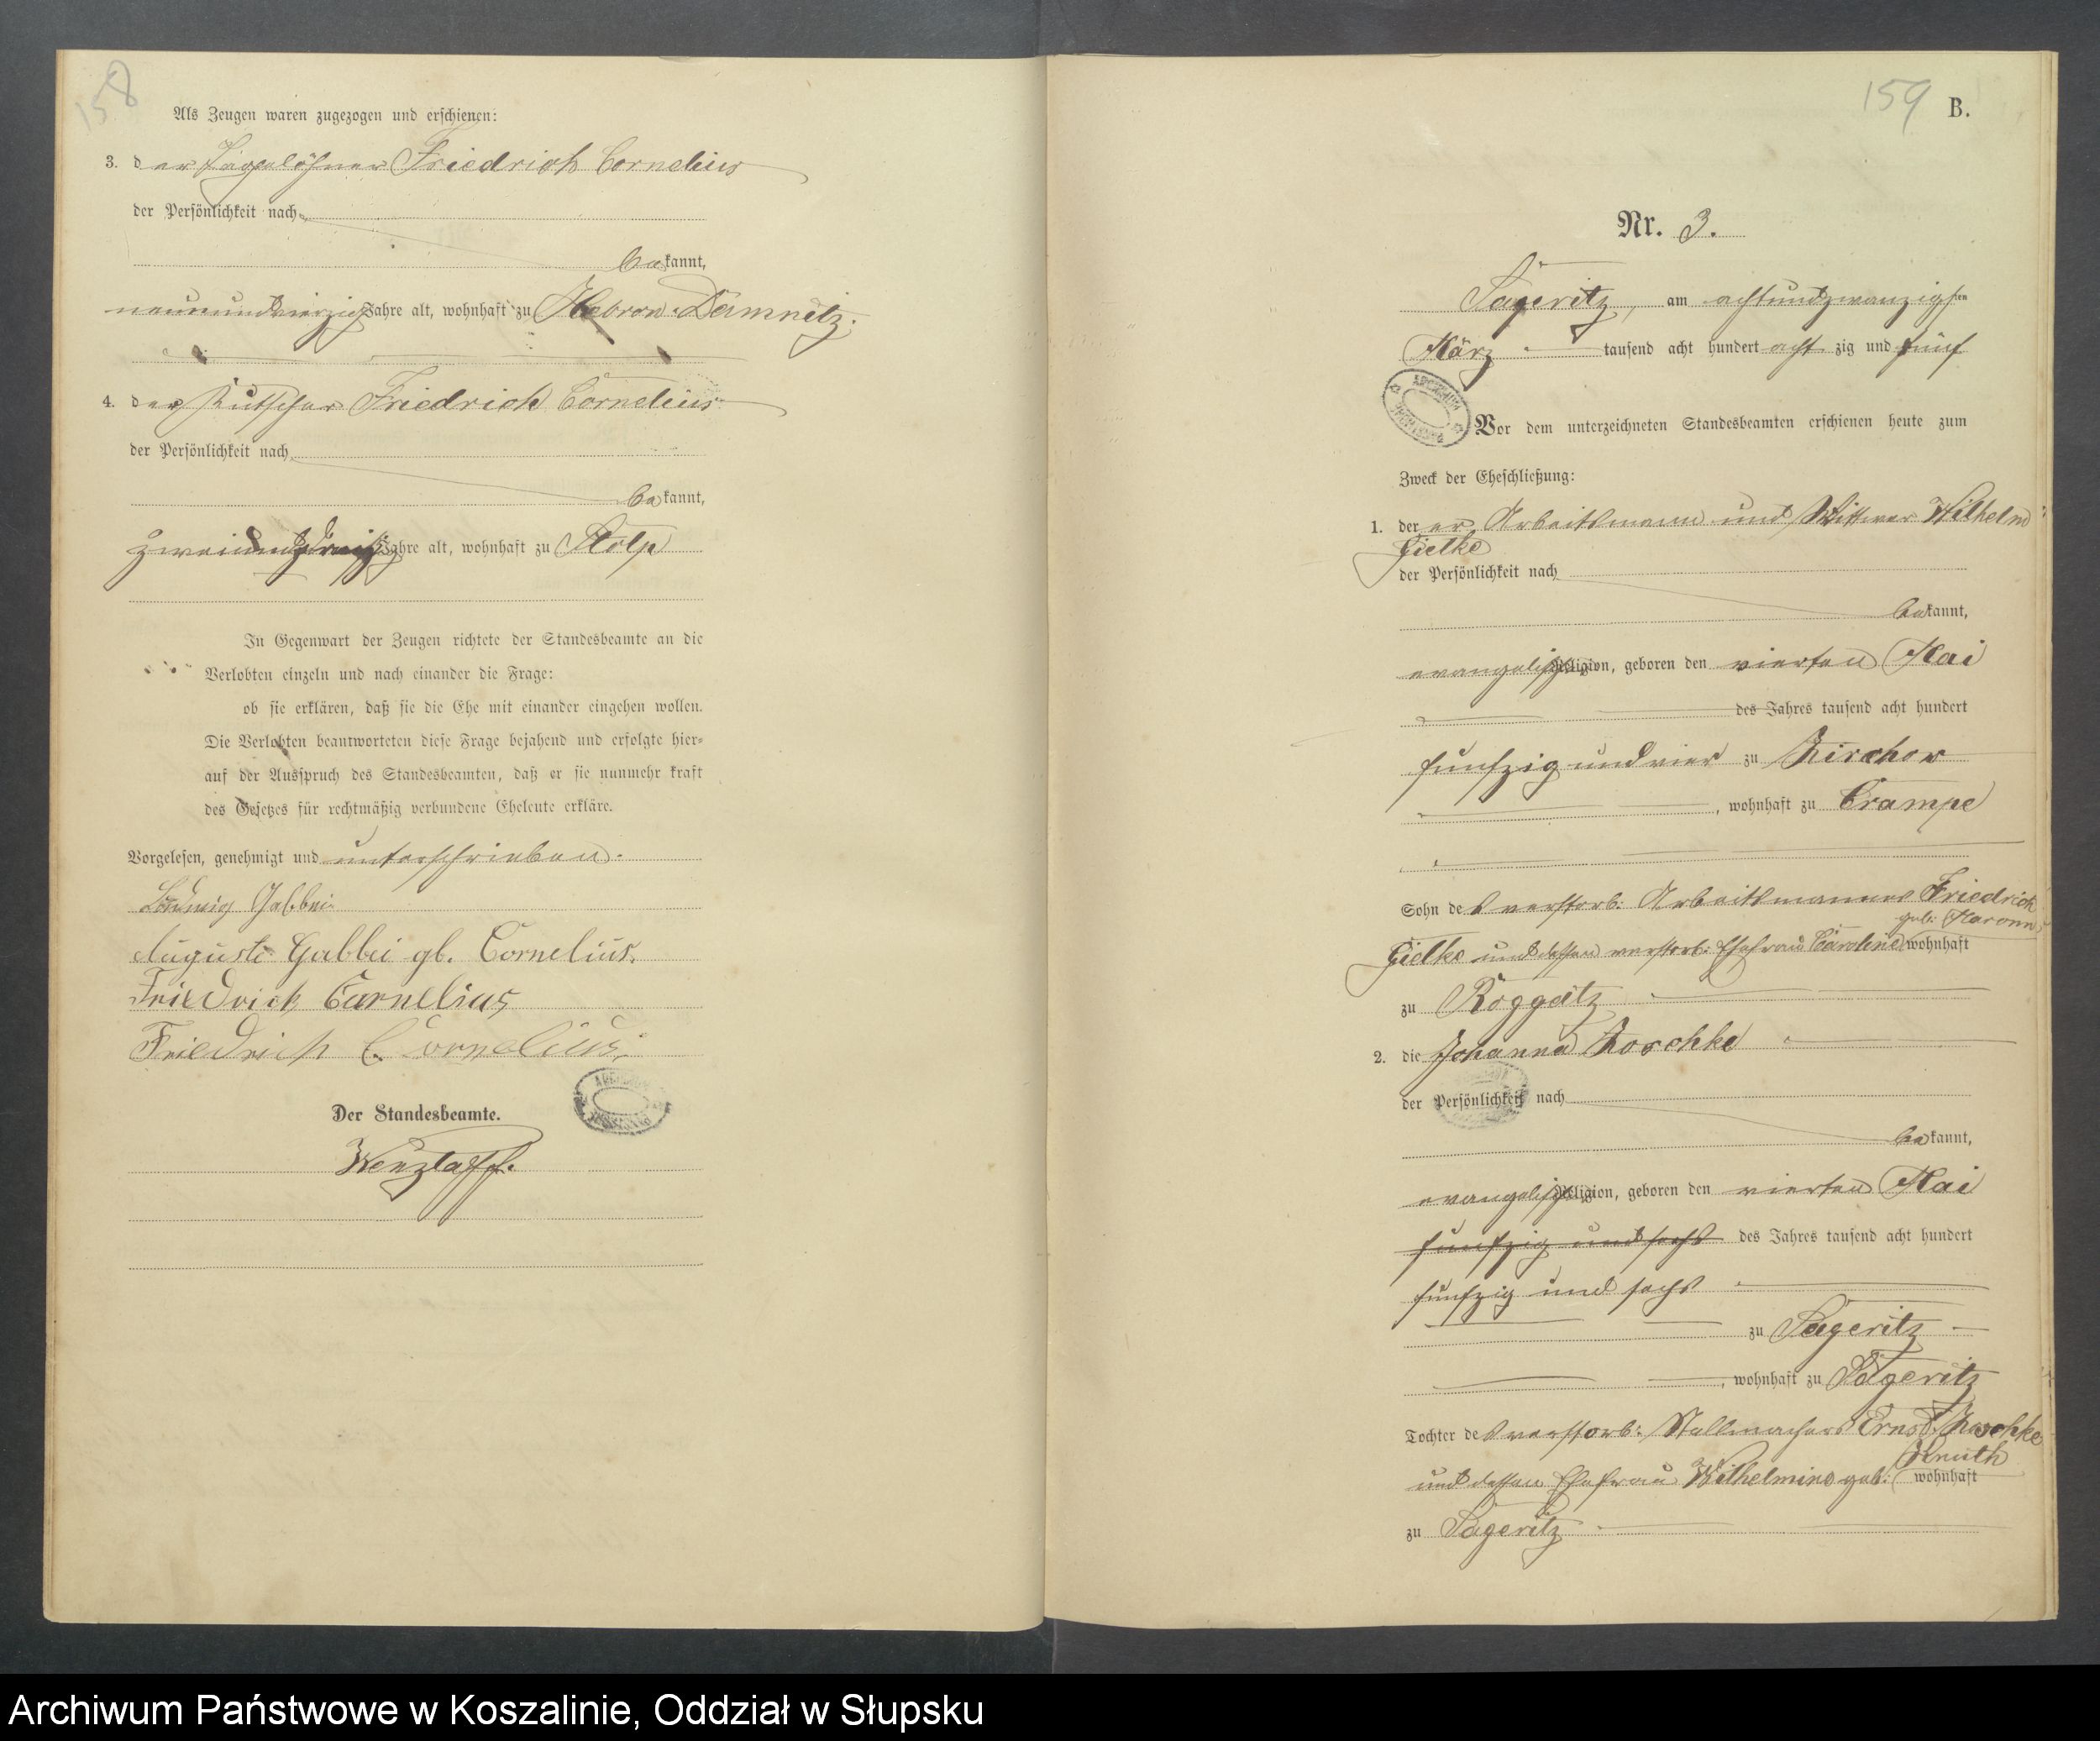 158
Als Zeugen waren zugezogen und erschienen:
3. der Tagelöhner Friedrich Cornelius
der Persönlichkeit nach
bekannt,
neunundvierzig Jahre alt, wohnhaft zu Hebron-Damnitz.
4. der Kutscher Friedrich Cornelius
der Persönlichkeit nach
bekannt,
zweiunddreißig Jahre alt, wohnhaft zu Stolp
In Gegenwart der Zeugen richtete der Standesbeamte an die
Verlobten einzeln und nach einander die Frage:
ob sie erklären, daß sie die Ehe mit einander eingehen wollen.
Die Verlobten beantworteten diese Frage bejahend und erfolgte hier-
auf der Ausspruch des Standesbeamten, daß er sie nunmehr kraft
des Gesetzes für rechtmäßig verbundene Eheleute erkläre.
Vorgelesen, genehmigt und unterschrieben.
Ludwig Gabbei
Auguste Gabbei gb. Cornelius.
Friedrich Carnelius
Friedrich Cornelius.
Der Standesbeamte.
Wenzlaff.
159 B.
Nr. 3.
Sageritz, am achtundzwanzigsten
März tausend acht hundert achtzig und fünf
Vor dem unterzeichneten Standesbeamten erschienen heute zum
Zweck der Eheschließung:
1. der er Arbeitsmann und Wittwer Wilhelm
Gielke
der Persönlichkeit nach
bekannt,
evangelischer Religion, geboren den vierten Mai
des Jahres tausend acht hundert
funfzig und vier zu Zirchow
, wohnhaft zu Crampe
Sohn des verstorb: Arbeitsmannes Friedrich
geb:
Gielke und dessen verstorb: Ehefrau Caroline wohnhaft
zu Roggatz
2. die Johanna Koschke
der Persönlichkeit nach
bekannt,
evangelischer Religion, geboren den vierten Mai
funfzig und sechs des Jahres tausend acht hundert
funfzig und sechs
zu Sageritz
, wohnhaft zu Sageritz
Tochter des verstorb: Stellmachers Ernst Koschke
Knuth
und dessen Ehefrau Wilhelmine geb: wohnhaft
zu Sageritz
Archiwum Państwowe w Koszalinie, Oddział w Słupsku